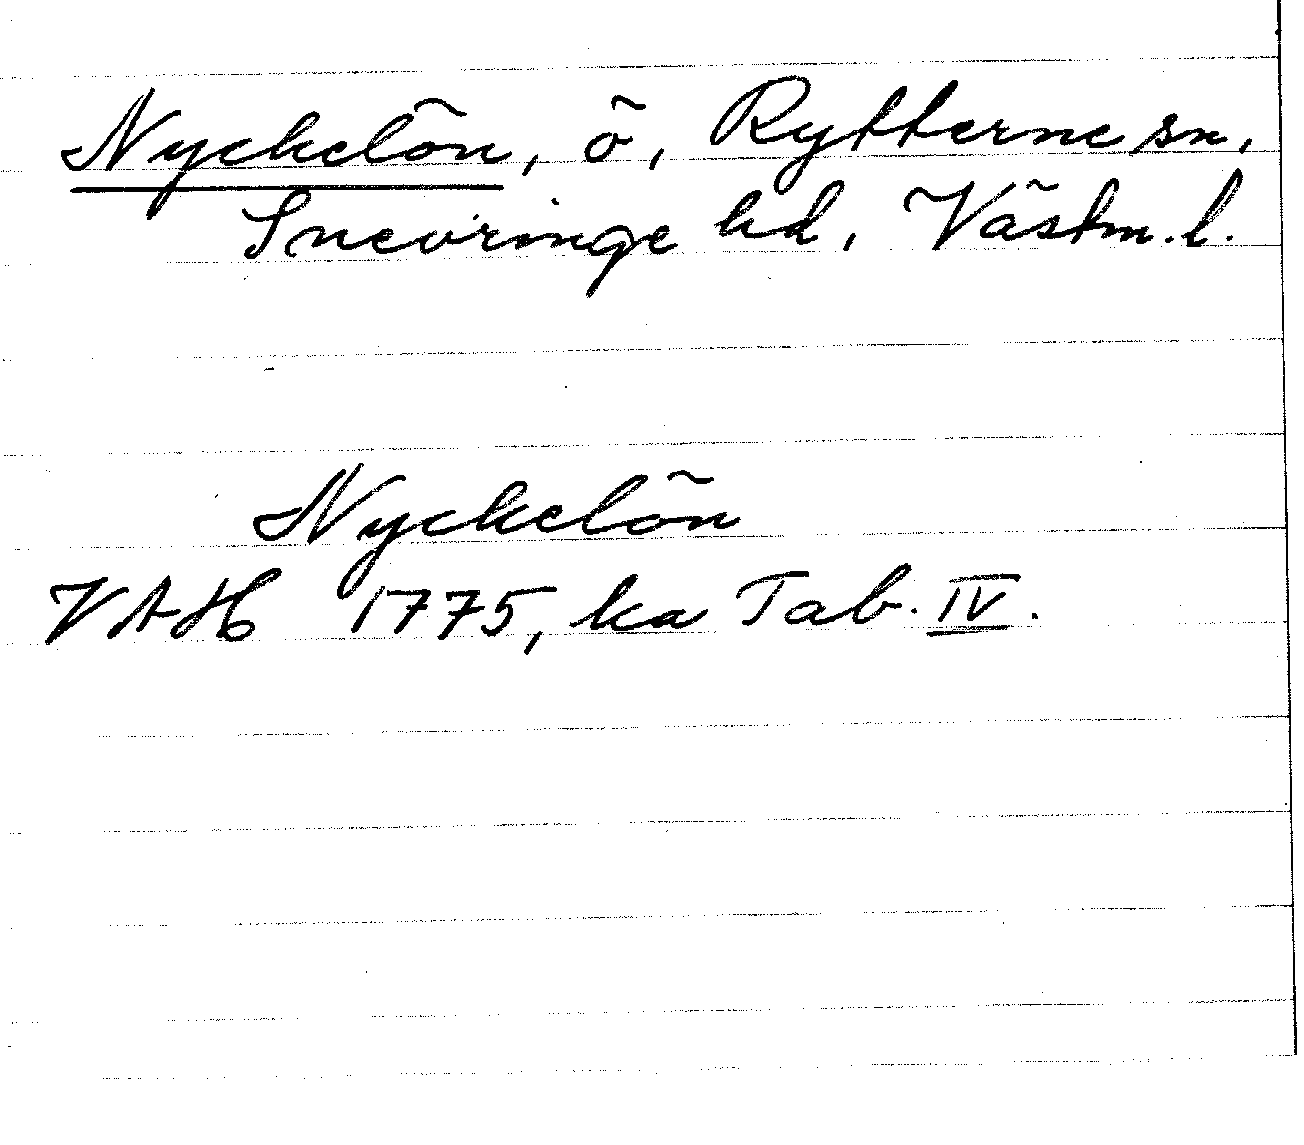 Nyckelön, ö, Rytterne sn,
Snevringe hd, Västm. l.
Nyckelön
VAH 1775, ka Tab. IV.